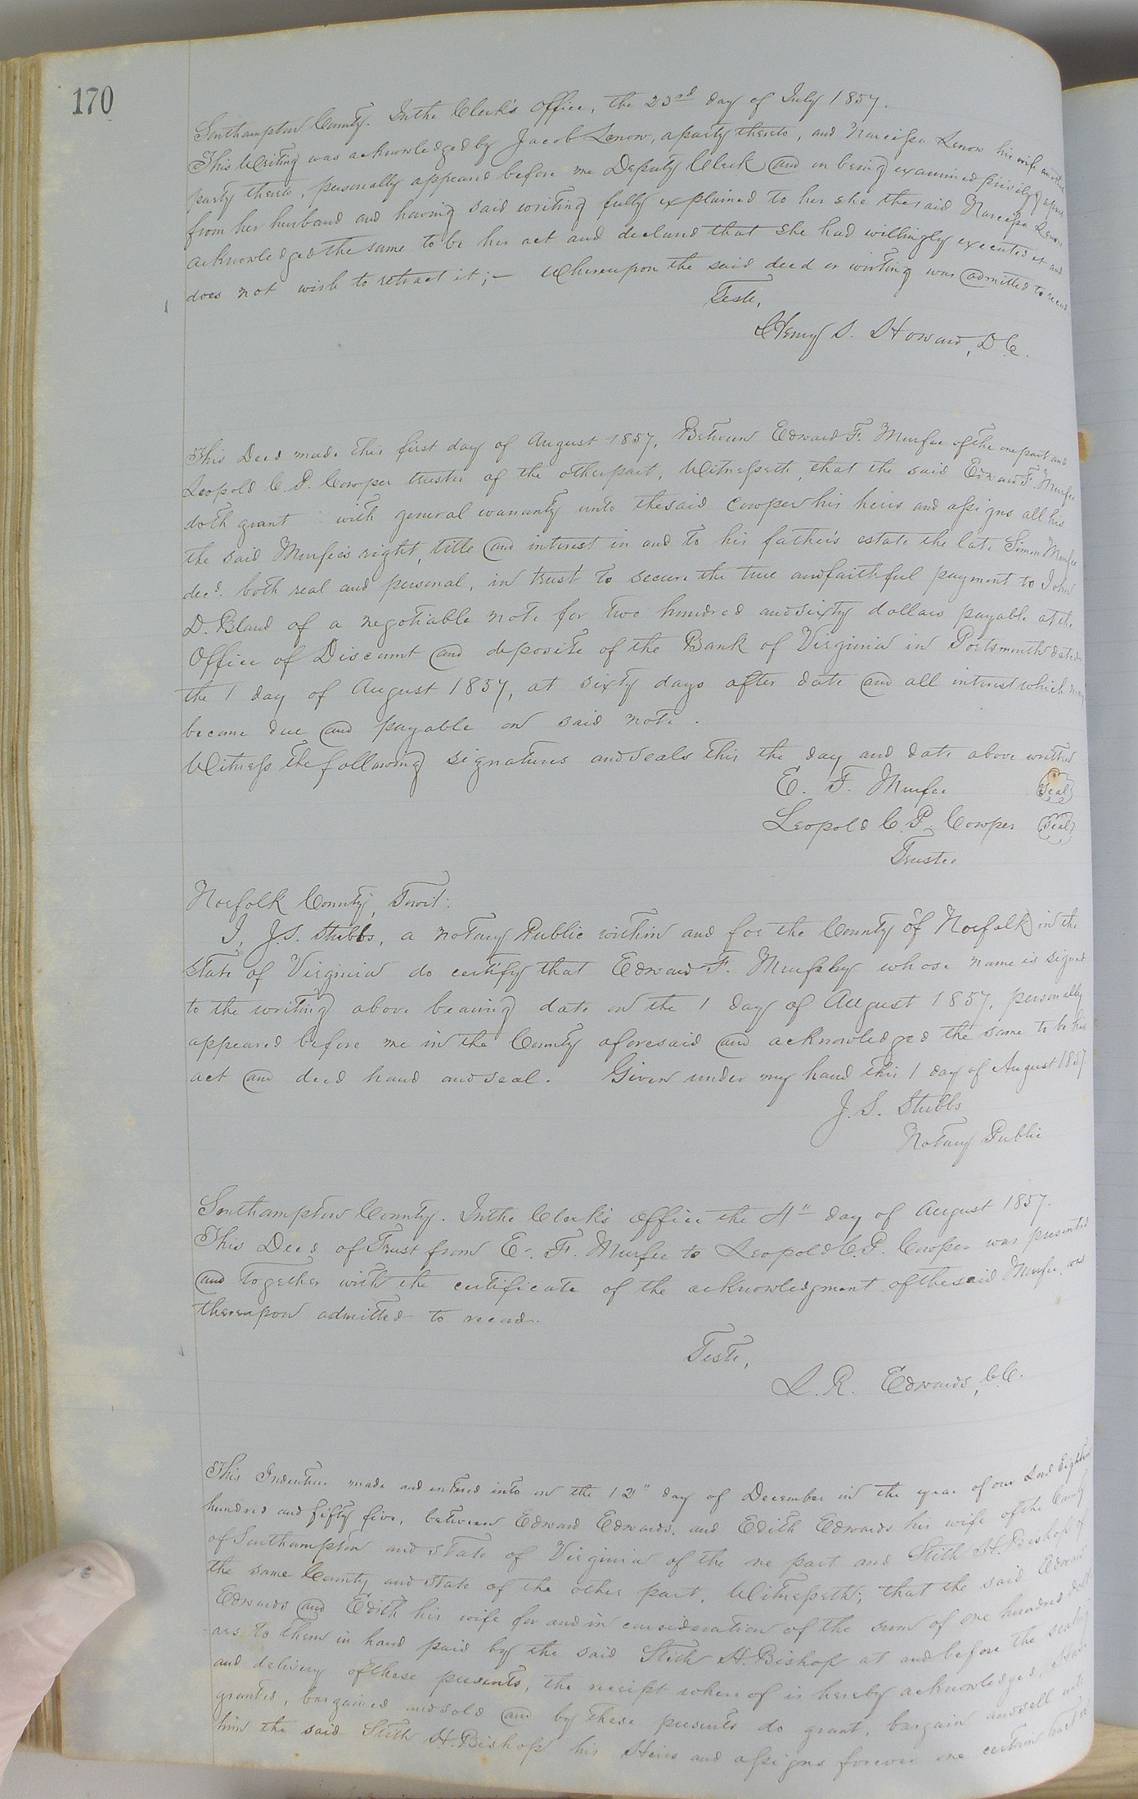 170
Southampton County. In the Clerk's Office, the 23rd day of July 1857.
This Writing was acknowledged by Jacob Lenow, a party thereto, and Narcissa Lenow his wife another
party thereto, personally appeared before me Deputy Clerk and on being examined privily & apart
from her husband and having said writing fully explained to her she the said Narcissa Lenow
acknowledged the same to be her act and declared that she had willingly executed it and
does not wish to retract it;- Whereupon the said deed or writing was admitted to record
Teste,
Henry S. Howard, D.C.
This Deed made this first day of August 1857, Between Edward F. Murfee of the one part and
Leopold C. P. Cowper trustee of the other part, Witnesseth, that the said Edward F. Murfee
doth grant with general warranty unto the said Cowper his heirs and assigns all his
the said Murfee's right, title and interest in and to his father's estate the late Simon Murfee
decd. both real and personal, in trust to secure the true and faithful payment to John
D. Bland of a negotiable note for two hundred and sixty dollars payable at the
Office of Discount and deposite of the Bank of Virginia in Portsmouth dated
the 1 day of August 1857, at sixty days after date and all interest which may
become due and payable on said note.
Witness the following signatures and seals this the day and date above written
E. F. Murfee Seal
Leopold C. P. Cowper Seal
Trustee
Norfolk County, Towit:
I, J. S. Stubbs, a notary Public within and for the County of Norfolk in the
State of Virginia do certify that Edward F. Murphey whose name is signed
to the writing above bearing date on the 1 day of August 1857, personally
appeared before me in the County aforesaid and acknowledged the same to be his
act and deed hand and seal. Given under my hand this 1 day of August 1857
J. S. Stubbs
Notary Public
Southampton County. In the Clerk's Office the 4" day of August 1857.
This Deed of Trust from E. F. Murfee to Leopold C. P. Cowper was presented
and together with the certificate of the acknowledgment of the said Murfee was
thereupon admitted to record.
Teste,
L. R. Edwards, C.C.
This Indenture made and entered into on the 12" day of December in the year of our Lord Eighteen
hundred and fifty five, between Edward Edwards, and Edith Edwards his wife of the County
of Southampton and State of Virginia of the one part and Stith H. Bishop of
the same County and State of the other part, Witnesseth; that the said Edward
Edwards and Edith his wife for and in consideration of the sum of one hundred doll
ars to them in hand paid by the said Stith H. Bishop at and before the sealing
and delivery of these presents, the receipt whereof is hereby acknowledged, have
granted, bargained and sold and by these presents do grant, bargain and sell unto
him the said Stith H. Bishop his Heirs and assigns forever one certain tract of